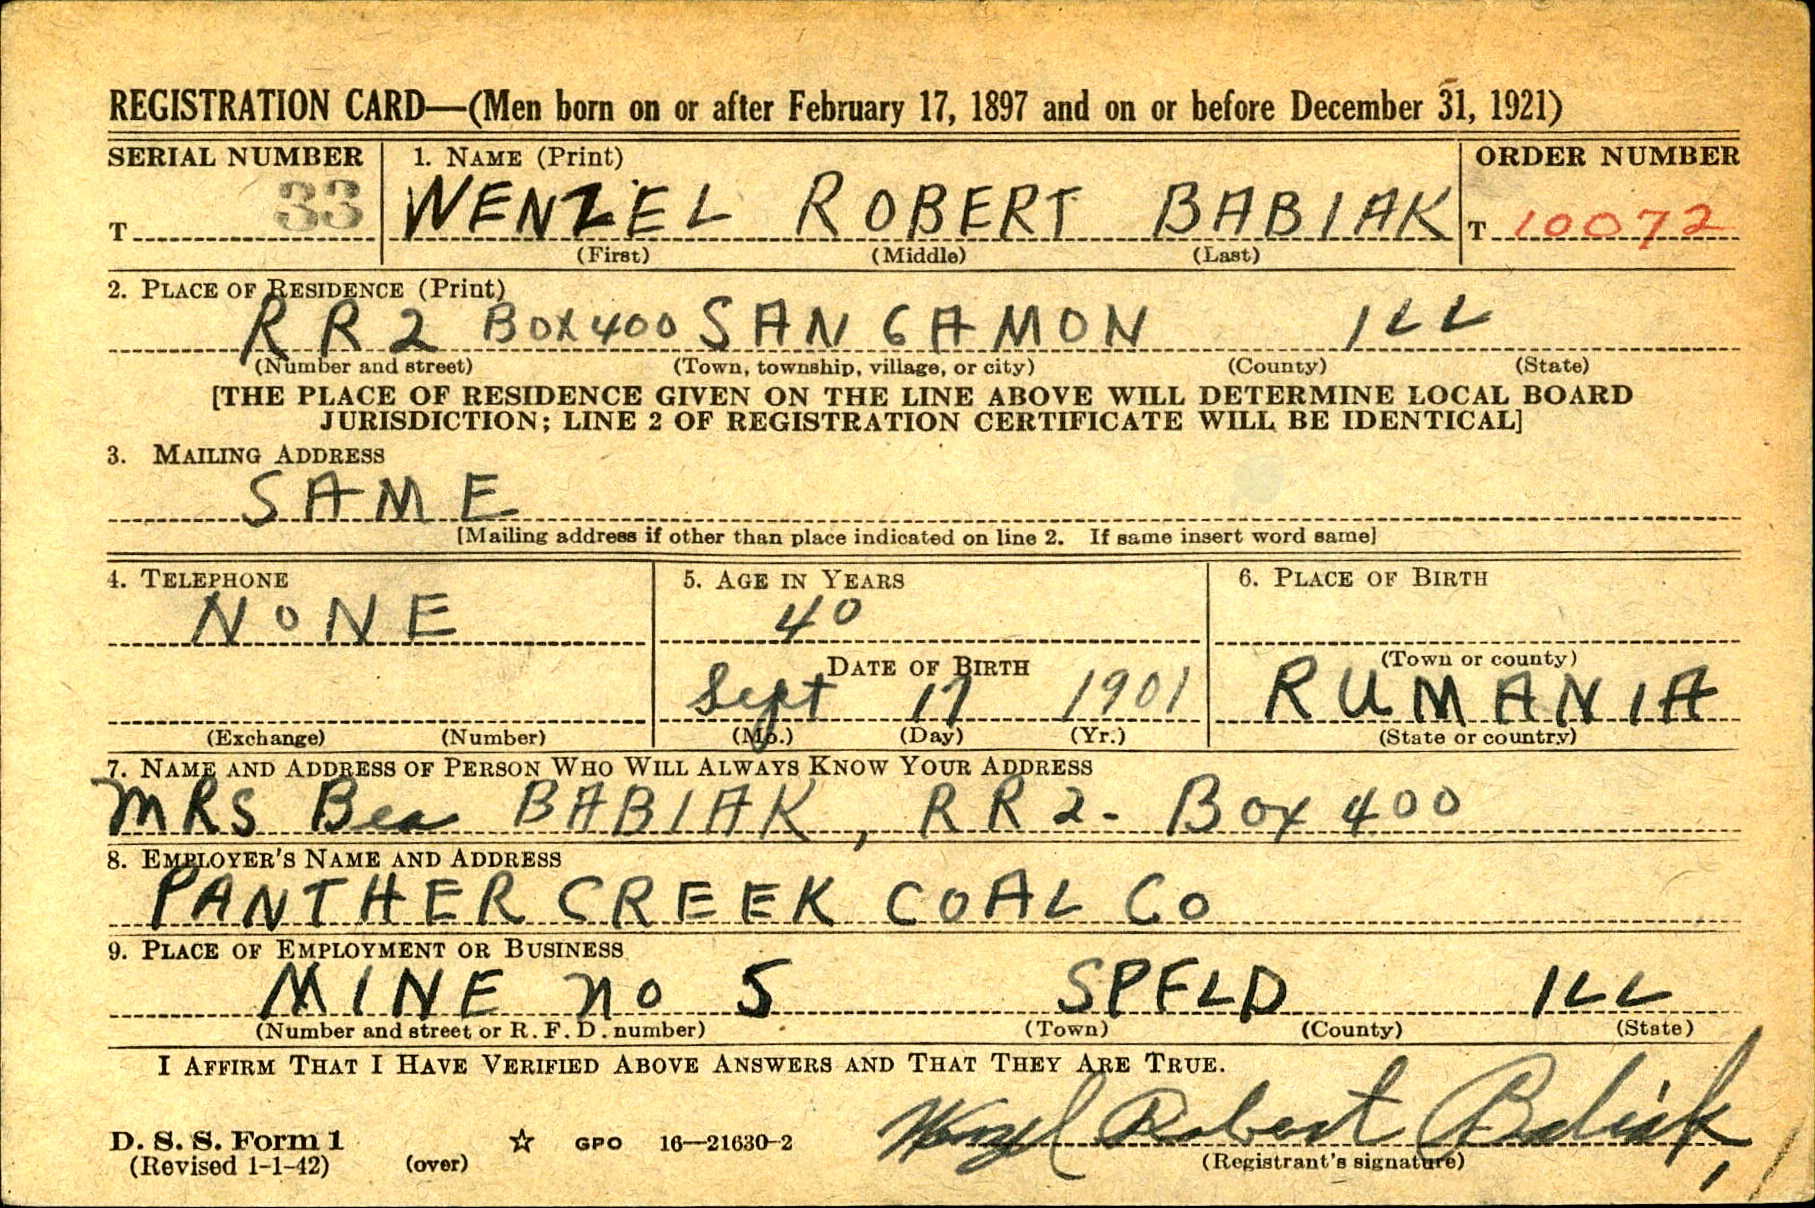 REGISTRATION CARD—(Men born on or after February 17, 1897 and on or before December 31, 1921)
SERIAL NUMBER 1. NAME (Print) ORDER NUMBER
T 33 WENZEL ROBERT BABIAK T 10072
(First) (Middle) (Last)
2. PLACE OF RESIDENCE (Print)
R R 2 BOX 400 SANGAMON ILL
(Number and street) (Town, township, village, or city) (County) (State)
[THE PLACE OF RESIDENCE GIVEN ON THE LINE ABOVE WILL DETERMINE LOCAL BOARD
JURISDICTION; LINE 2 OF REGISTRATION CERTIFICATE WILL BE IDENTICAL]
3. MAILING ADDRESS
SAME
[Mailing address if other than place indicated on line 2. If same insert word same]
4. TELEPHONE 5. AGE IN YEARS 6. PLACE OF BIRTH
NONE 40
DATE OF BIRTH (Town or county)
Sept 17 1901 RUMANIA
(Exchange) (Number) (Mo.) (Day) (Yr.) (State or country)
7. NAME AND ADDRESS OF PERSON WHO WILL ALWAYS KNOW YOUR ADDRESS
MRS Bea BABIAK, R R 2 - Box 400
8. EMPLOYER'S NAME AND ADDRESS
PANTHER CREEK COAL CO
9. PLACE OF EMPLOYMENT OR BUSINESS
MINE no 5 SPFLD ILL
(Number and street or R. F. D. number) (Town) (County) (State)
I AFFIRM THAT I HAVE VERIFIED ABOVE ANSWERS AND THAT THEY ARE TRUE.
Wenzel Robert Babiak
D. S. S. Form 1 ☆ GPO 16—21630-2
(Revised 1-1-42) (over) (Registrant's signature)